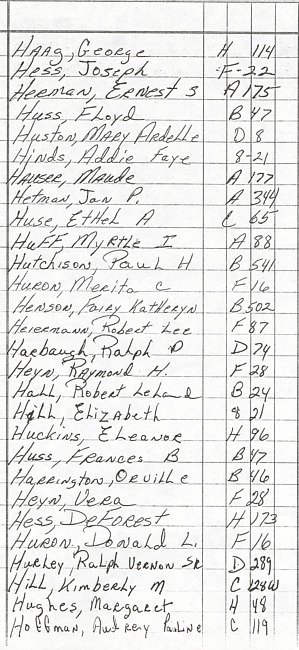 Haag, George H 114
Hess, Joseph F-22
Herman, Ernest S A 175
Huss, Floyd B 47
Huston, Mary Ardelle D 8
Hinds, Addie Faye 8-21
Hauser, Maude A 177
Hetman, Jan P. A 344
Huse, Ethel A C 65
Huff, Myrtle I A 88
Hutchison, Paul H B 541
Huron, Merita C F 16
Henson, Fairy Katheryn B 502
Heiermann, Robert Lee F 87
Harbaugh, Ralph P D 74
Heyn, Raymond H. F 28
Hall, Robert Leland B 24
Hill, Elizabeth 8 21
Huckins, Eleanor H 96
Huss, Frances B B 47
Harrington, Orville B 46
Heyn, Vera F 28
Hess, DeForest H 173
Huron, Donald L. F 16
Hurley, Ralph Vernon SR D 289
Hill, Kimberly M C 128W
Hughes, Margaret H 48
Hoffman, Audrey Pauline C 119